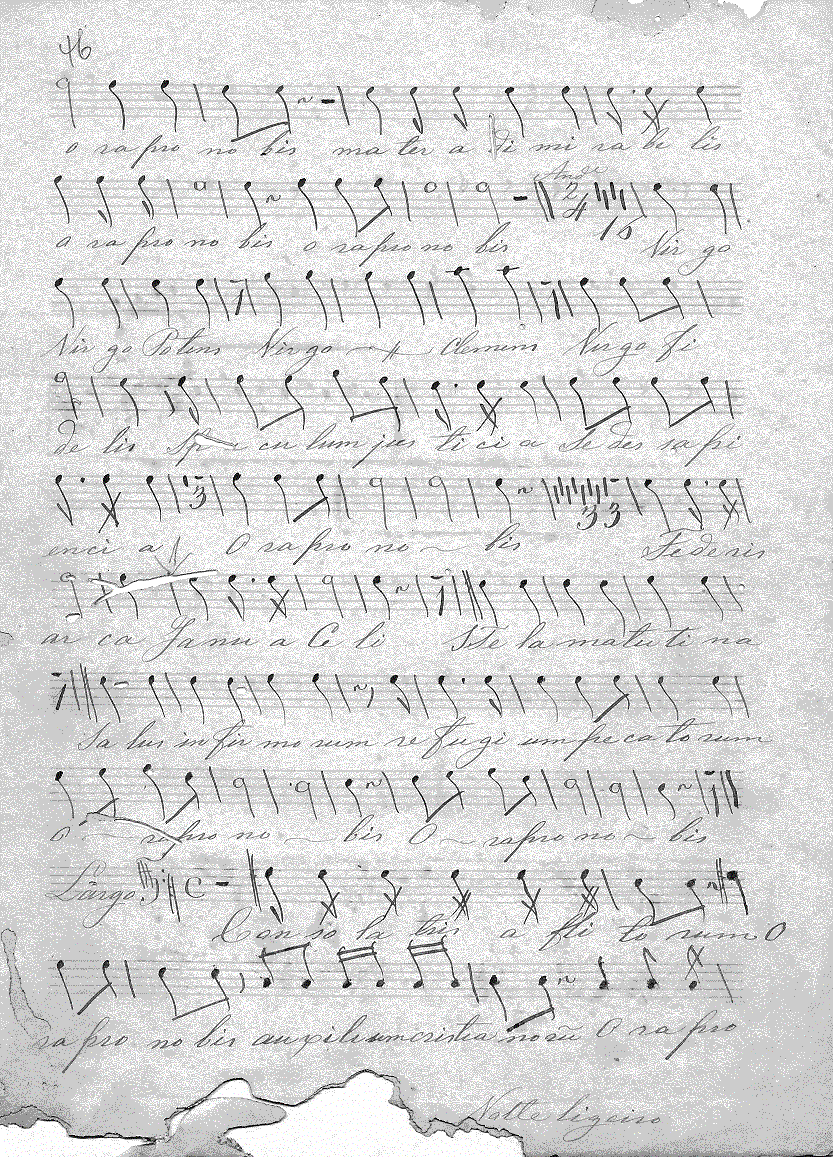 46
o ra pro no bis ma ter a di mi ra be lis
Andte
2 4 16
o ra pro no bis o ra pro no bis Vir go
Vir go Potens Virgo Clemens Virgo fi
de lis Spe cu lum jus ti ci a Se des sa pi
3 33
enci a O ra pro no bis Federis
ar ca Janu a Ce li Ste la matu ti na
Sa lus in fir mo rum re fu gi um pe ca to rum
o ra pro no bis O ra pro no bis
Largo C
Con so la tris a fli to rum O
ra pro no bis auxilium cristia norũ O ra pro
Volte ligeiro